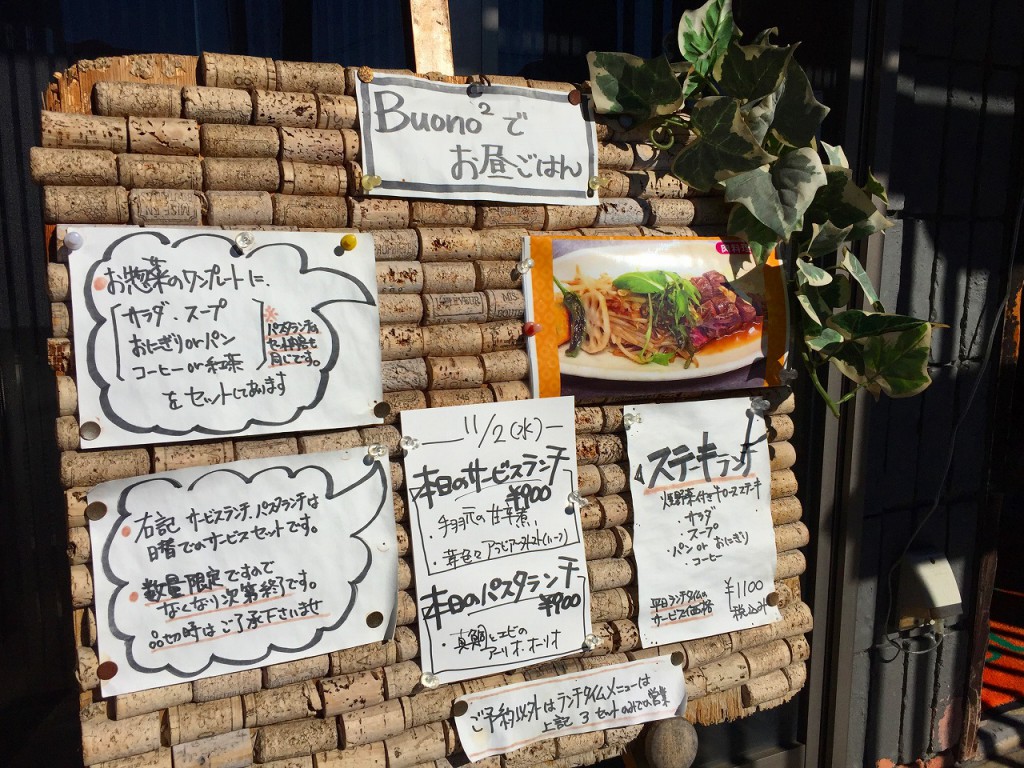 Buono²で
お昼ごはん
お惣菜のワンプレートに、
サラダ・スープ
おにぎりorパン
コーヒーor紅茶
をセットしてあります
※パスタランチは
同じです。
右記 サービスランチ、パスタランチは
日替でのサービスセットです。
数量限定ですので
なくなり次第終了です。
品切時はご了承下さいませ
11/2(水)
本日のサービスランチ
¥900
本日のパスタランチ
¥900
・真鯛とエビの
アーリオ・オーリオ
ステーキランチ
・サラダ
・スープ
・パン or おにぎり
・コーヒー
平日ランチタイムの
サービス価格
¥1100
税込み
ご予約以外はランチタイムメニューは
上記 3セットのみでの営業